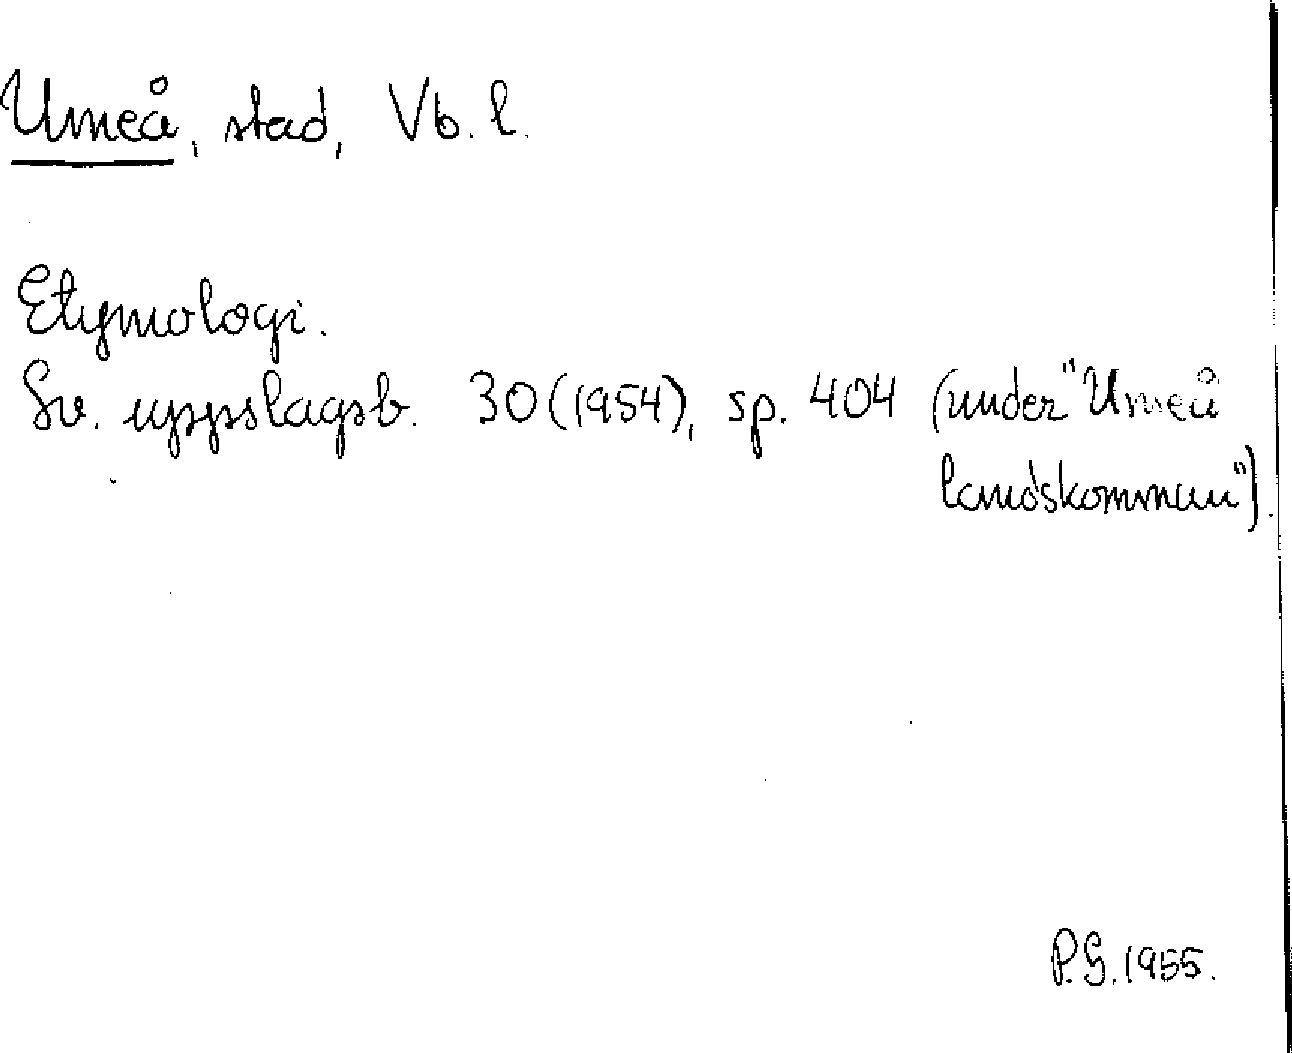 Umeå, stad, Vb. l.
Etymologi.
Sv. uppslagsb. 30 (1954), sp. 404 (under "Umeå
landskommun").
P.G. 1955.